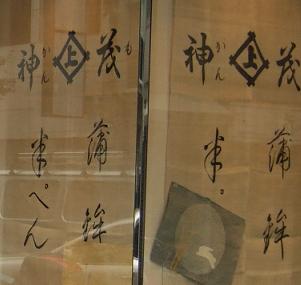 神 上 茂
かん も
蒲鉾
半ぺん
神 上 茂
かん
蒲鉾
半